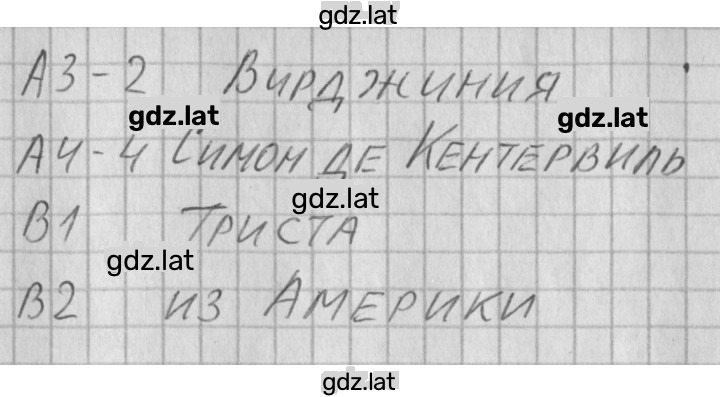 gdz.lat
А3-2 Вирджиния
gdz.lat gdz.lat
А4-4 Симон де Кентервиль
gdz.lat
В1 Триста
gdz.lat
В2 из Америки
gdz.lat